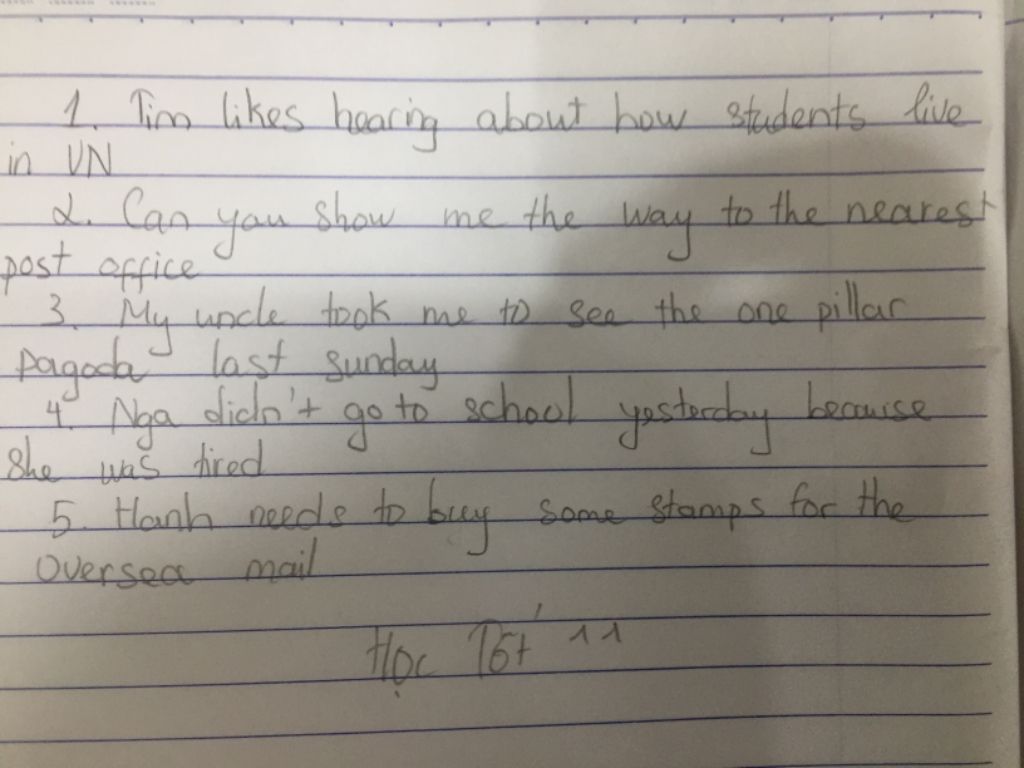 1. Tim likes hearing about how students live
in VN
2. Can you show me the way to the nearest
post office
3. My uncle took me to see the one pillar
pagoda last sunday
4. Nga didn't go to school yesterday because
she was tired
5. Hanh needs to buy some stamps for the
oversea mail
Học Tốt ^^